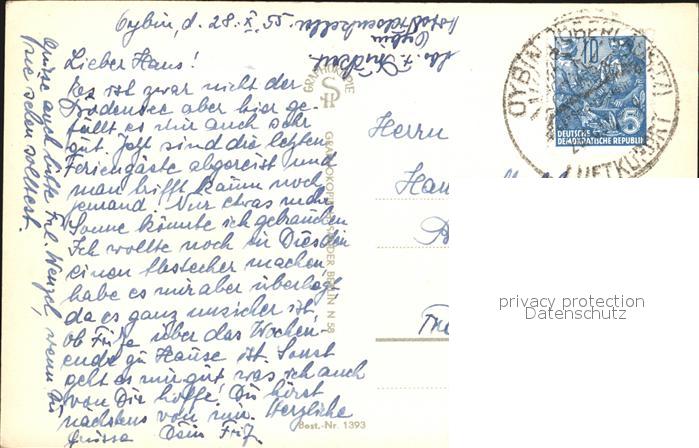 Oybin, d. 28. X. 55.
Oybin
Lieber Hans!
Es ist zwar nicht der
Bodensee aber hier ge-
fällt es mir auch sehr
gut. Jetzt sind die letzten
Feriengäste abgereist und
man trifft kaum noch
jemand. Nur etwas mehr
Sonne könnte ich gebrauchen
Ich wollte noch in Dresden
einen Abstecher machen
habe es mir aber überlegt
da es ganz unsicher ist,
ob Fritz über das Wochen-
ende zu Hause ist. Sonst
geht es mir gut, was ich auch
von Dir hoffe. Du hörst
nächstens von mir. Herzliche
Grüsse Dein Fritz
Grüsse auch bitte Frl. Wenzel, wenn Du
sie sehen solltest.
GRAPHOKOPIE
GRAPHOKOPIE H. SANDER BERLIN N 58
Best.-Nr. 1393
Herrn
Han
Fre
10
5
DEUTSCHE
DEMOKRATISCHE REPUBLIK
OYBIN
LUFTKURORT
privacy protection
Datenschutz